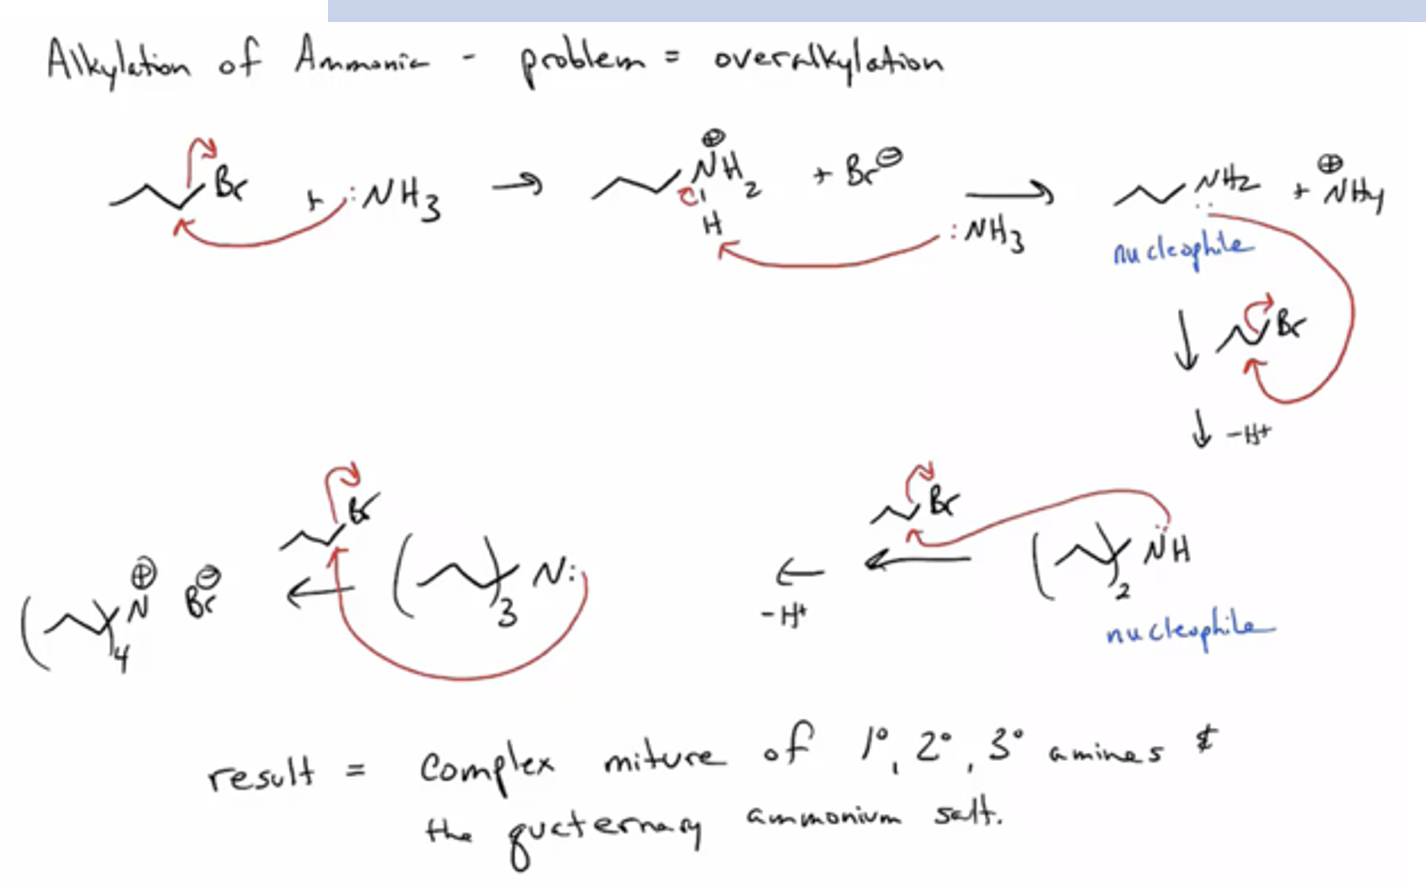 Alkylation of Ammonia - problem = overalkylation
Br + :NH3 → ⊕NH2 H + Br⊖ :NH3 → NH2 + ⊕NH4
nucleophile
Br
-H+
Br Br
(   )4 N⊕ Br⊖ ← (   )3 N: ← -H+ ← (   )2 NH
nucleophile
result = complex miture of 1°, 2°, 3° amines &
the quternary ammonium salt.